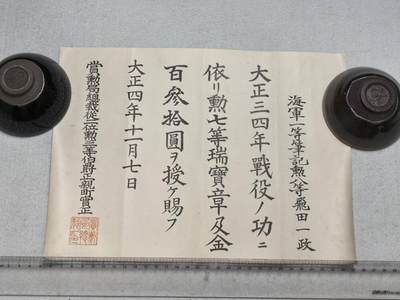 海軍一等筆記勲八等飛田一政
大正三四年戰役ノ功ニ
依リ勲七等瑞寶章及金
百參拾圓ヲ授ケ賜フ
大正四年十一月七日
賞勲局總裁從二位勲二等伯爵正親町實正